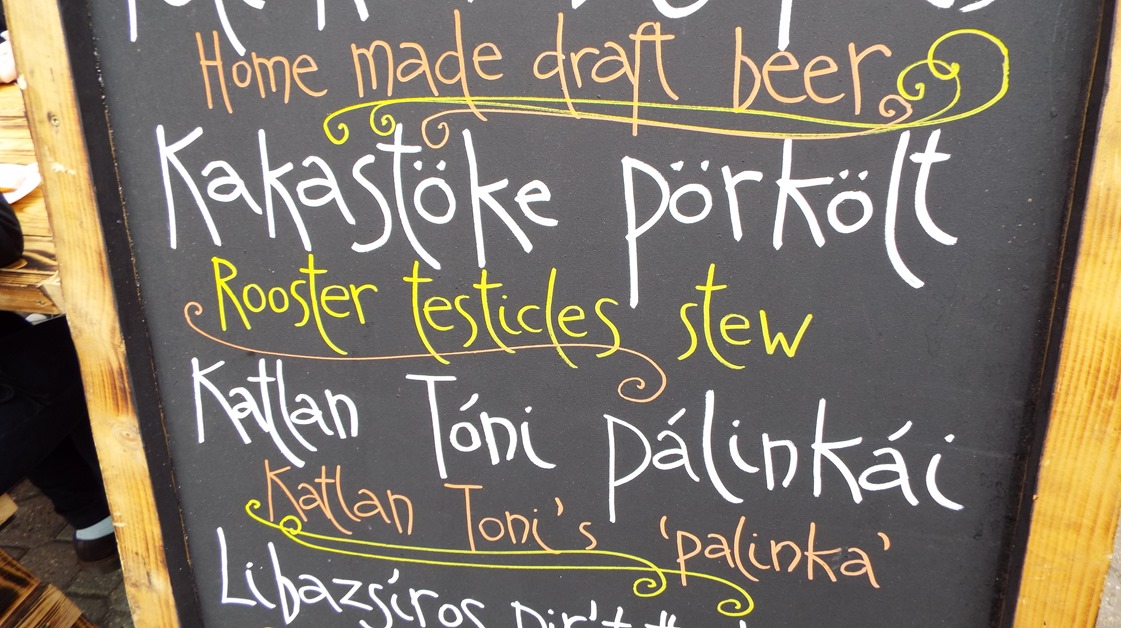 Home made draft beer
Kakastöke pörkölt
Rooster testicles stew
Katlan Tóni pálinkái
Katlan Toni's 'palinka'
Libazsíros